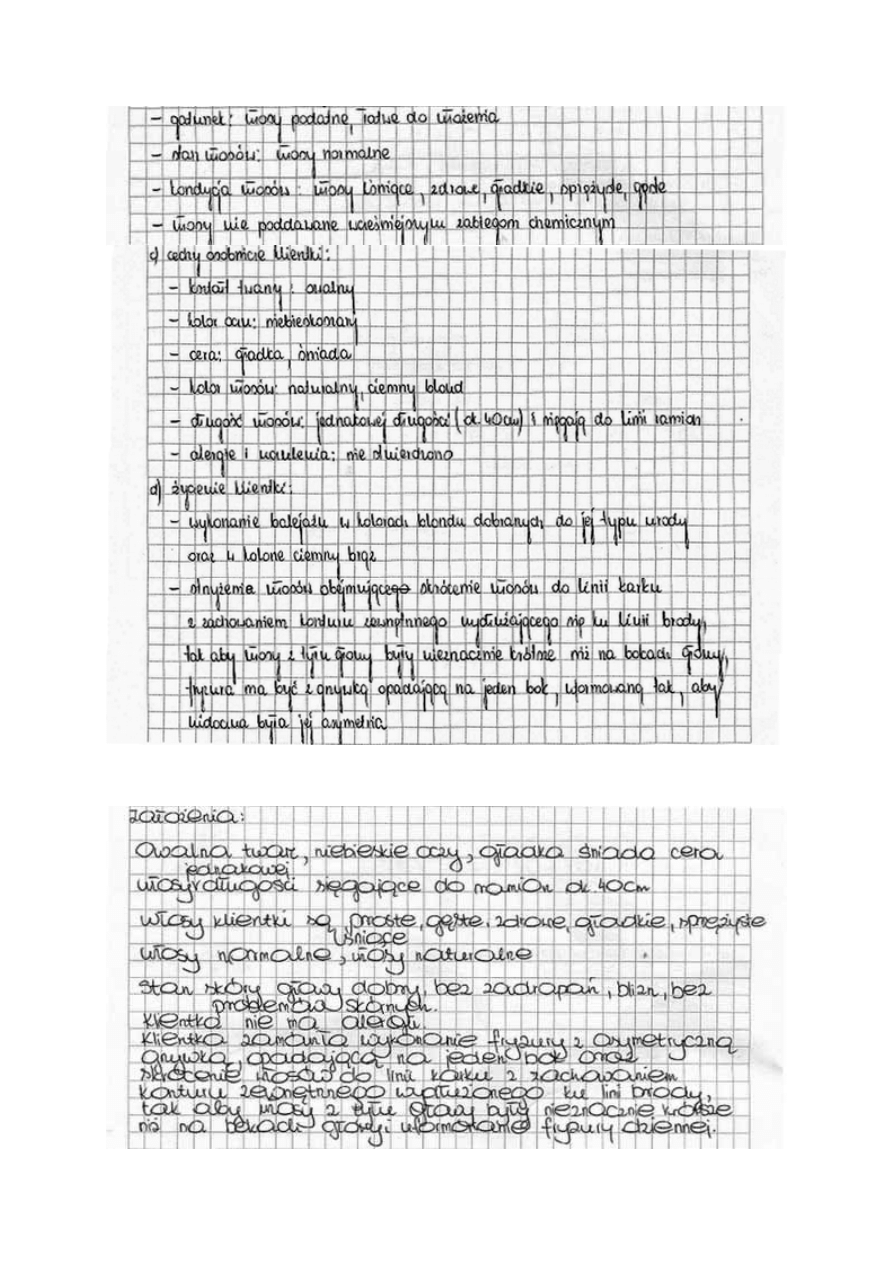 - gatunek: włosy podatne, łatwe do ułożenia
- stan włosów: włosy normalne
- kondycja włosów: włosy lśniące, zdrowe, gładkie, sprężyste, gęste
- włosy nie poddawane wcześniejszym zabiegom chemicznym
c) cechy osobnicze klientki:
- kształt twarzy: owalny
- kolor oczu: niebieskoszary
- cera: gładka, śniada
- kolor włosów: naturalny, ciemny blond
- długość włosów: jednakowej długości (ok. 40cm) i sięgają do linii ramion
- alergie i uczulenia: nie stwierdzono
d) życzenie klientki:
- wykonanie balejażu w kolorach blondu dobranych do jej typu urody
oraz w kolorze ciemny brąz
- strzyżenie włosów obejmującego skrócenie włosów do linii karku
z zachowaniem konturu zewnętrznego wydłużającego się ku linii brody,
tak aby włosy z tyłu głowy były nieznacznie krótsze niż na bokach głowy,
fryzura ma być z grzywką opadającą na jeden bok, uformowaną tak, aby
widoczna była jej asymetria
założenia:
Owalna twarz, niebieskie oczy, gładka śniada cera
jednakowej
włosy długości sięgające do ramion ok. 40cm
włosy klientki są proste, gęste, zdrowe, gładkie, sprężyste
lśniące
włosy normalne, włosy naturalne
Stan skóry głowy dobry, bez zadrapań, blizn, bez
problemów skórnych.
Klientka nie ma alergii.
Klientka zamawia wykonanie fryzury z asymetryczną
grzywką, opadającą na jeden bok oraz
skrócenie włosów do linii karku z zachowaniem
konturu zewnętrznego wydłużonego ku lini brody,
tak aby włosy z tyłu głowy były nieznacznie krótsze
niż na bokach głowy i uformowanie fryzury dziennej.